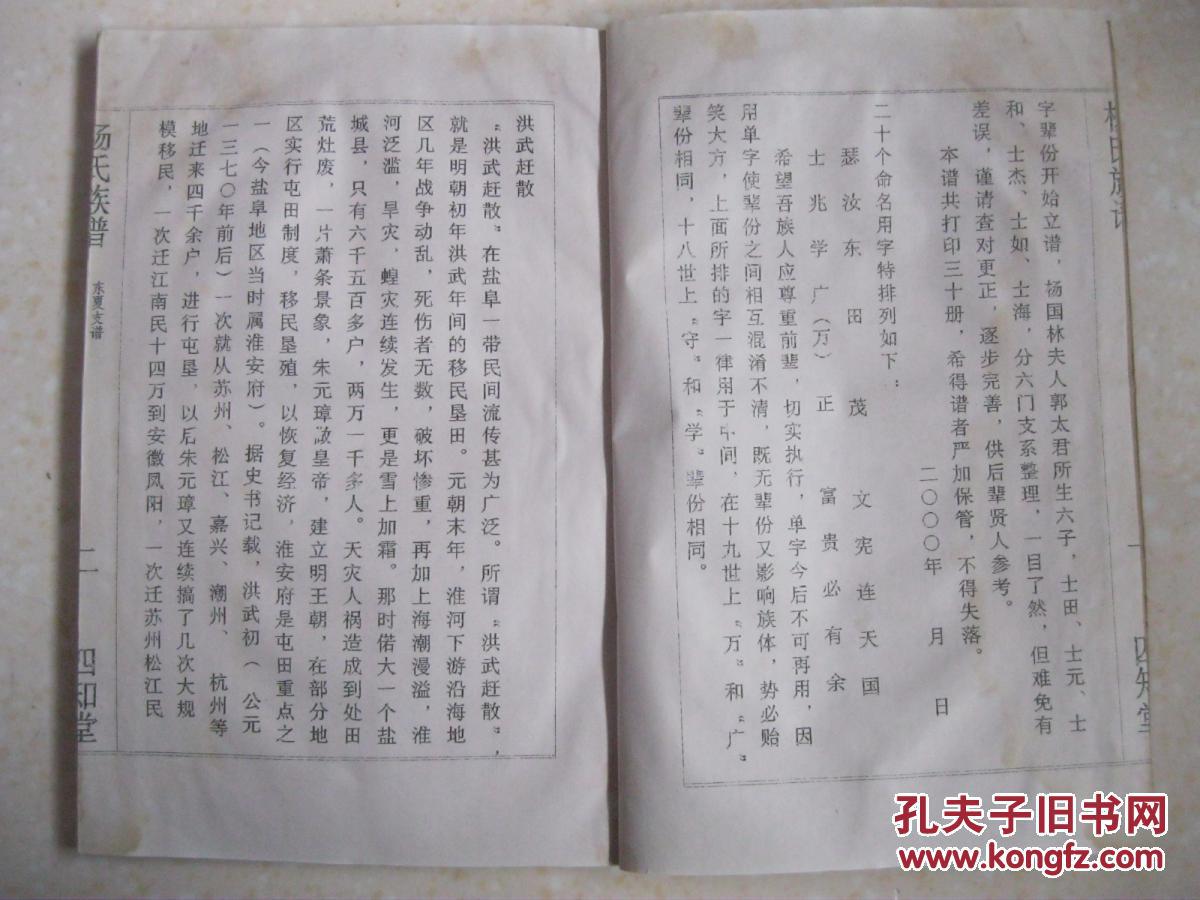 字辈份开始立谱，杨国林夫人郭太君所生六子，士田、士元、士
和、士杰、士如、士海，分六门支系整理，一目了然，但难免有
差误，谨请查对更正，逐步完善，供后辈贤人参考。
本谱共打印三十册，希得谱者严加保管，不得失落。
二〇〇〇年　月　日
二十个命名用字特排列如下：
瑟汝东田茂　文宪连天国
士兆学广（万）正　富贵必有余
希望吾族人应尊重前辈，切实执行，单字今后不可再用，因
用单字使辈份之间相互混淆不清，既无辈份又影响族体，势必贻
笑大方，上面所排的字一律用于中间，在十九世上“万”和“广”
辈份相同，十八世上“守”和“学”辈份相同。
四知堂
洪武赶散
“洪武赶散”在盐阜一带民间流传甚为广泛。所谓“洪武赶散”，
就是明朝初年洪武年间的移民垦田。元朝末年，淮河下游沿海地
区几年战争动乱，死伤者无数，破坏惨重，再加上海潮漫溢，淮
河泛滥，旱灾，蝗灾连续发生，更是雪上加霜。那时偌大一个盐
城县，只有六千五百多户，两万一千多人。天灾人祸造成到处田
荒灶废，一片萧条景象，朱元璋做皇帝，建立明王朝，在部分地
区实行屯田制度，移民垦殖，以恢复经济，淮安府是屯田重点之
一（今盐阜地区当时属淮安府）。据史书记载，洪武初（公元
一三七〇年前后）一次就从苏州、松江、嘉兴、潮州、杭州等
地迁来四千余户，进行屯垦，以后朱元璋又连续搞了几次大规
模移民，一次迁江南民十四万到安徽凤阳，一次迁苏州松江民
杨氏族谱　东夏支谱　二　四知堂
孔夫子旧书网
www.kongfz.com